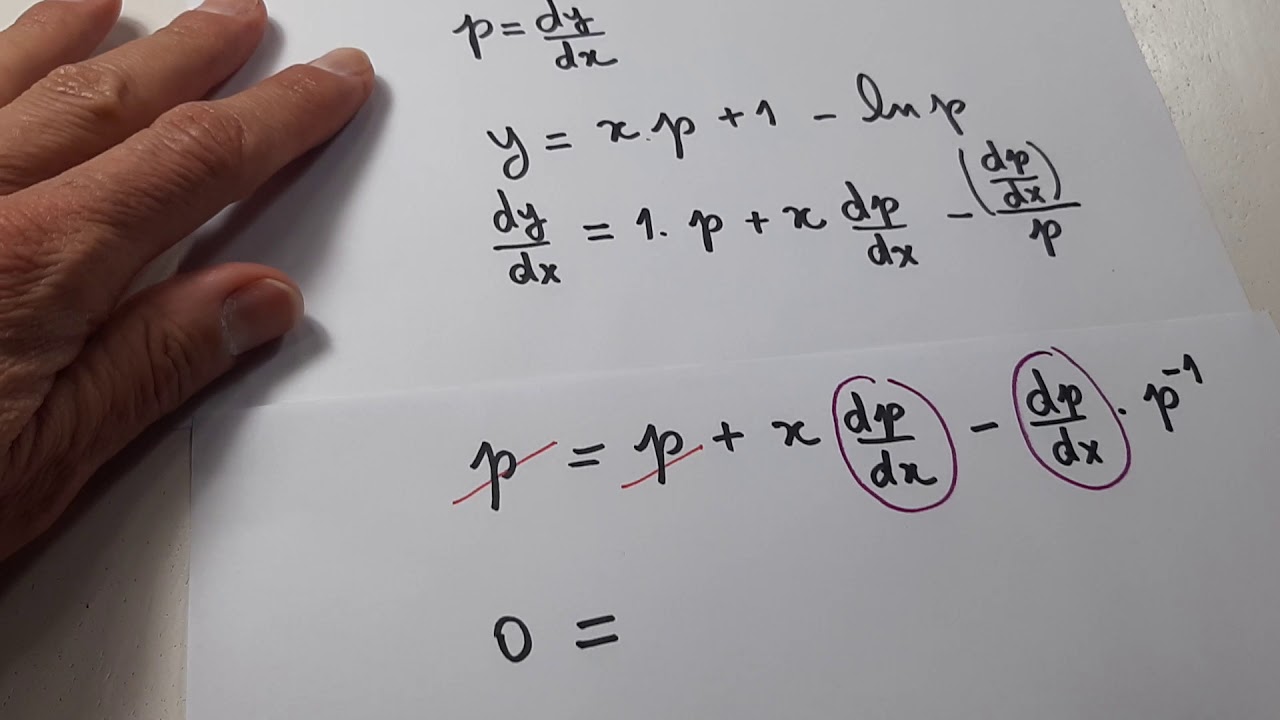 p = dy/dx
y = x.p + 1 - ln p
dy/dx = 1. p + x dp/dx - (dp/dx)/p
p = p + x dp/dx - dp/dx . p⁻¹
0 =